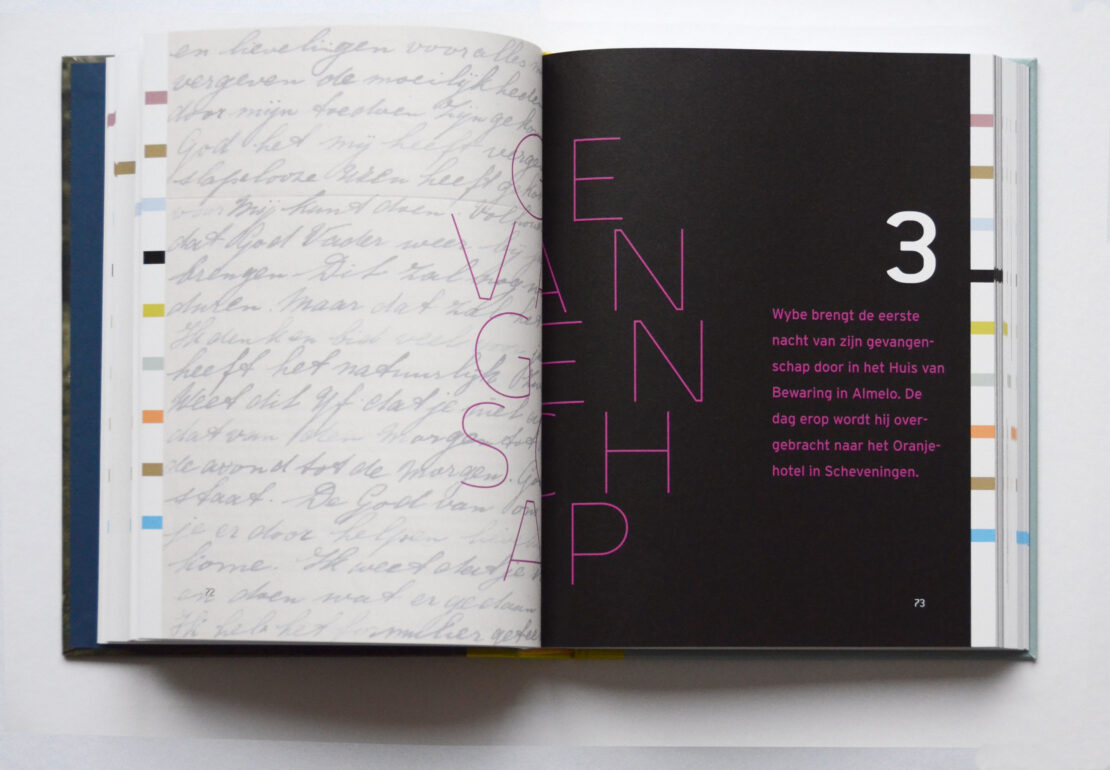 en lievelingen voor alles
vergeven de moeilijkheden
door mijn toedoen zijn
God het mij heeft
slapelooze uren heeft
voor mij kunt doen.
dat God Vader weer
brengen. Dit zal nog
duren. Maar dat zal het
Ik denken
heeft het natuurlijk
Weet dit Yf dat je niet
dat van den morgen tot
de avond tot de morgen.
staat. De God van
je er door helpen
kome. Ik weet dat je
en doen wat er gedaan
Ik heb het
72
GE
VAN
GEN
SCH
AP
3
Wybe brengt de eerste
nacht van zijn gevangen-
schap door in het Huis van
Bewaring in Almelo. De
dag erop wordt hij over-
gebracht naar het Oranje-
hotel in Scheveningen.
73